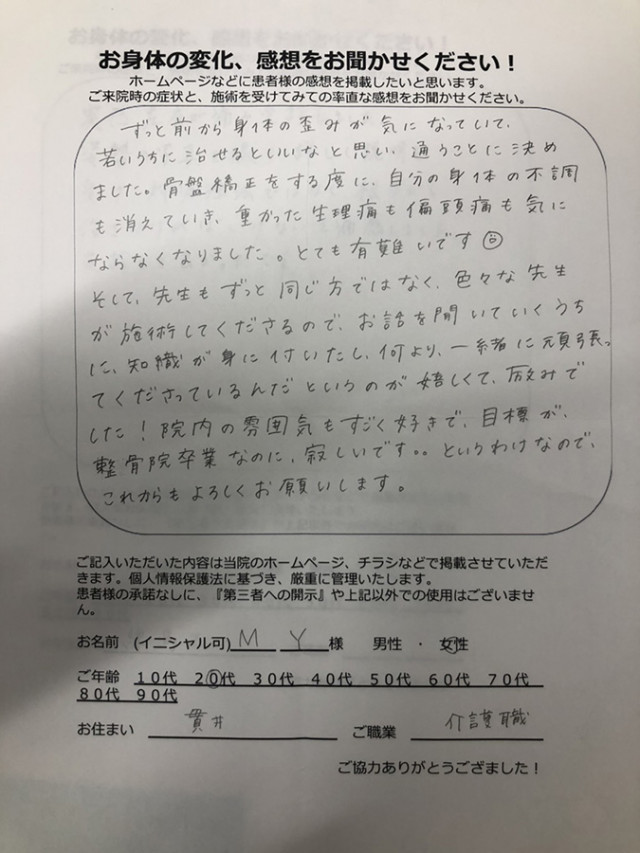 お身体の変化、感想をお聞かせください！
ホームページなどに患者様の感想を掲載したいと思います。
ご来院時の症状と、施術を受けてみての率直な感想をお聞かせください。
ずっと前から身体の歪みが気になっていて、
若いうちに治せるといいなと思い、通うことに決め
ました。骨盤矯正をする度に、自分の身体の不調
も消えていき、重かった生理痛も偏頭痛も気に
ならなくなりました。とても有難いです
そして、先生もずっと同じ方ではなく、色々な先生
が施術してくださるので、お話を聞いていくうち
に、知識が身に付いたし、何より、一緒に頑張っ
てくださっているんだというのが嬉しくて、励みで
した！院内の雰囲気もすごく好きで、目標が、
整骨院卒業なのに、寂しいです。。というわけなので、
これからもよろしくお願いします。
ご記入いただいた内容は当院のホームページ、チラシなどで掲載させていただ
きます。個人情報保護法に基づき、厳重に管理いたします。
患者様の承諾なしに、『第三者への開示』や上記以外での使用はございませ
ん。
お名前 (イニシャル可) M Y 様 男性 ・ 女性
ご年齢 10代 20代 30代 40代 50代 60代 70代
80代 90代
お住まい 貫井 ご職業 介護職
ご協力ありがとうござました！